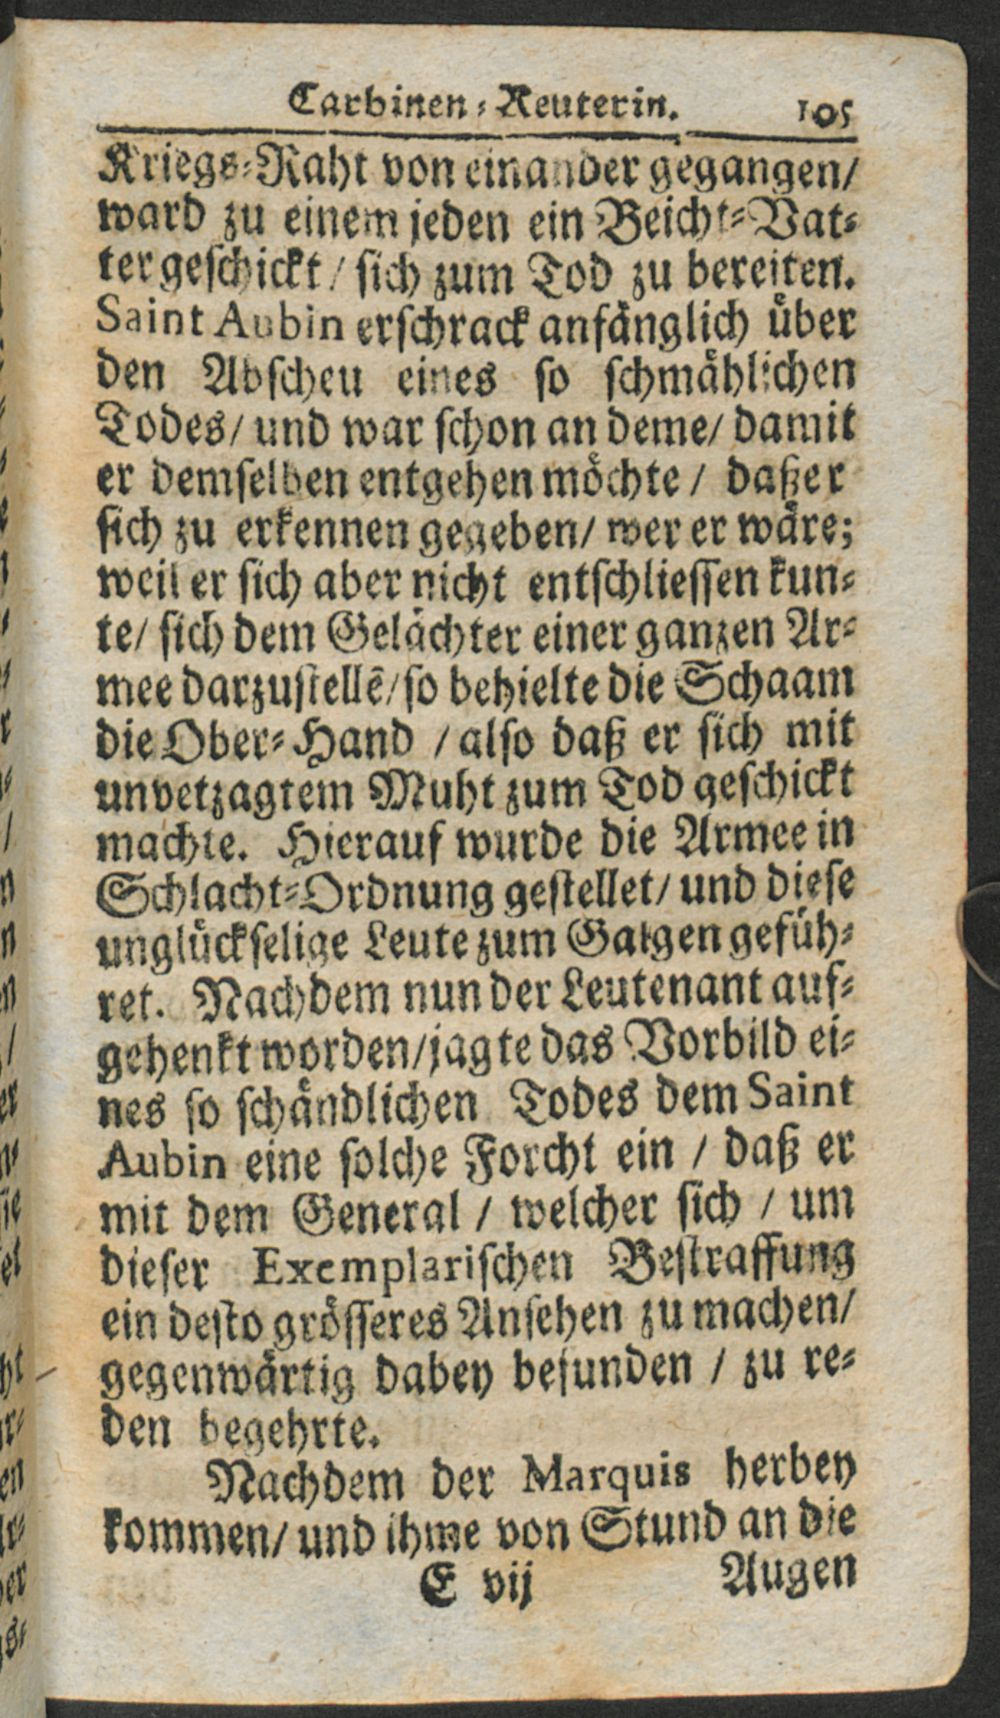 Carbinen-Reuterin. 105
Kriegs-Raht von einander gegangen/
ward zu einem jeden ein Beicht-Vat-
ter geschickt/ sich zum Tod zu bereiten.
Saint Aubin erschrack anfänglich über
den Abscheu eines so schmählichen
Todes/ und war schon an deme/ damit
er demselben entgehen möchte / daß er
sich zu erkennen gegeben/ wer er wäre;
weil er sich aber nicht entschliessen kun-
te/ sich dem Gelächter einer ganzen Ar-
mee darzustellē/ so behielte die Schaam
die Ober-Hand / also daß er sich mit
unvetzagtem Muht zum Tod geschickt
machte. Hierauf wurde die Armee in
Schlacht-Ordnung gestellet/ und diese
unglückselige Leute zum Galgen gefüh-
ret. Nachdem nun der Leutenant auf-
gehenkt worden/ jagte das Vorbild ei-
nes so schändlichen Todes dem Saint
Aubin eine solche Forcht ein / daß er
mit dem General / welcher sich / um
dieser Exemplarischen Bestraffung
ein desto grösseres Ansehen zu machen/
gegenwärtig dabey befunden / zu re-
den begehrte.
Nachdem der Marquis herbey
kommen/ und ihme von Stund an die
E vij Augen